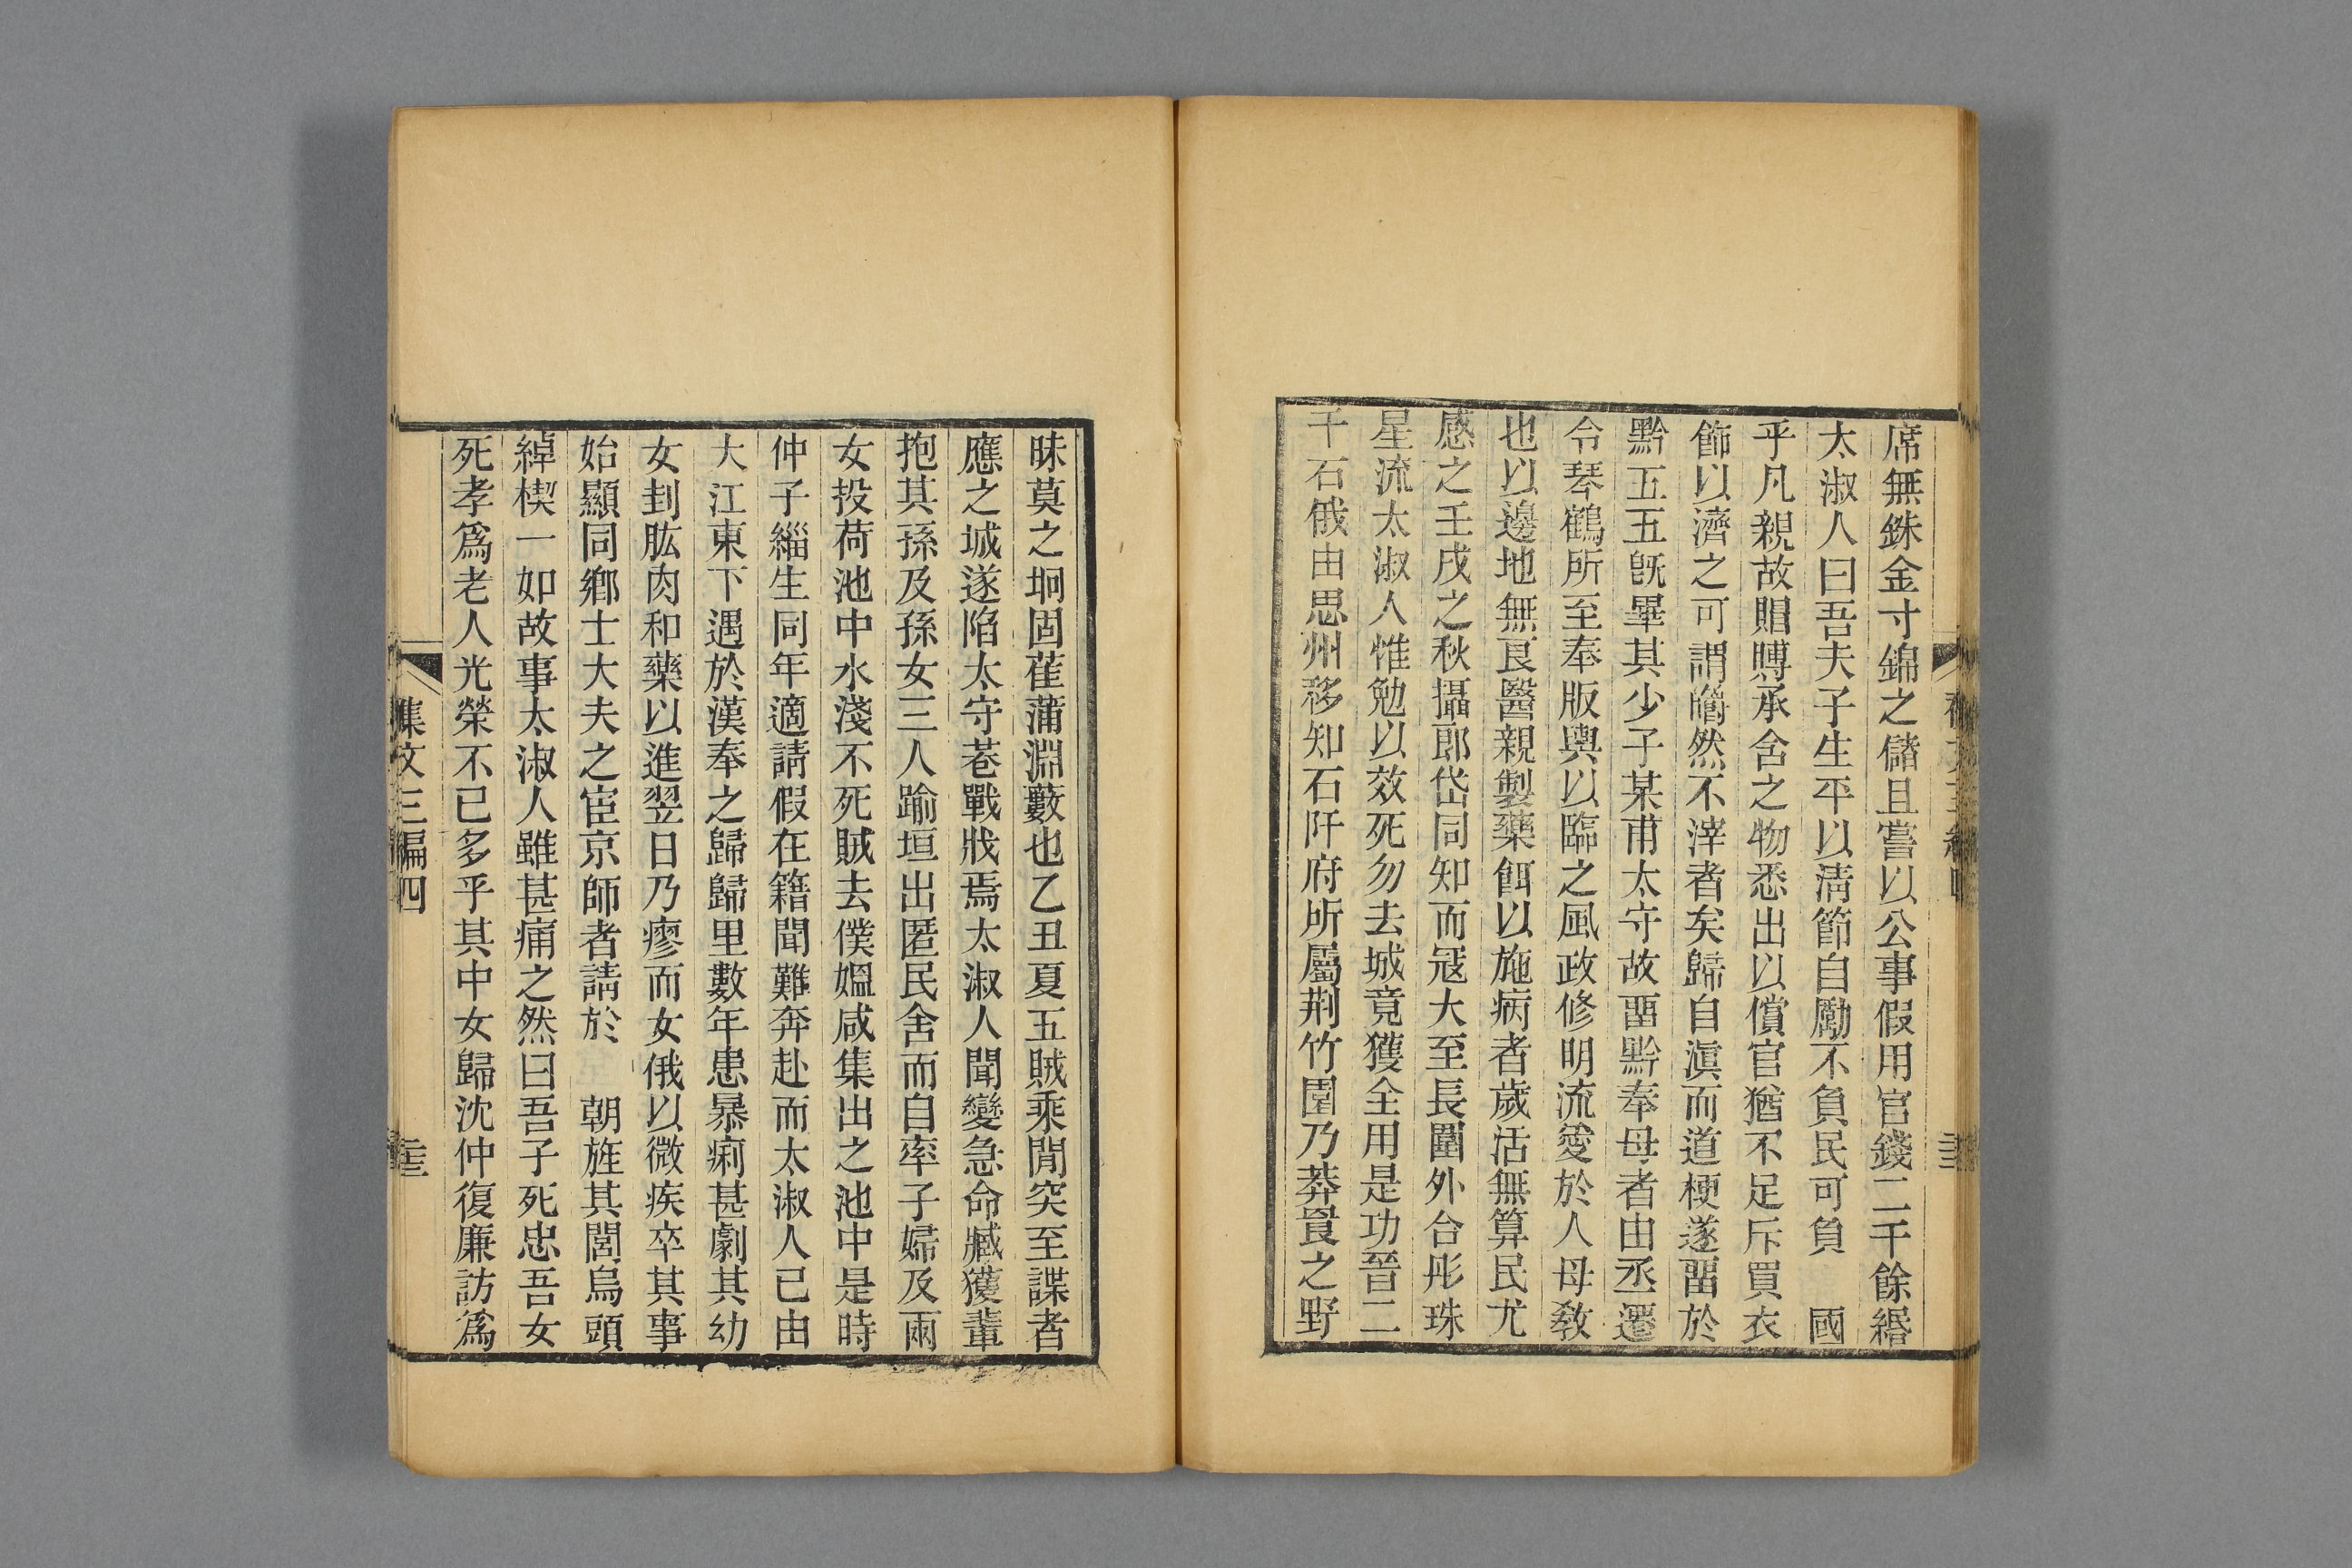 席無銖金寸錦之儲且嘗以公事假用官錢二千餘緡
太淑人曰吾夫子生平以清節自勵不負民可負　國
乎凡親故賵賻承含之物悉出以償官猶不足斥買衣
飾以濟之可謂皭然不滓者矣歸自滇而道梗遂畱於
黔五五旣畢其少子某甫太守故畱黔奉母者由丞遷
令琴鶴所至奉版輿以臨之風政修明流愛於人母敎
也以邊地無良醫親製藥餌以施病者歲活無算民尤
感之壬戌之秋攝郎岱同知而冦大至長圍外合彤珠
星流太淑人惟勉以效死勿去城竟獲全用是功晉二
千石俄由思州移知石阡府所屬荆竹園乃莽買之野
昧莫之坰固萑蒲淵藪也乙丑夏五賊乘閒突至諜者
應之城遂陷太守巷戰戕焉太淑人聞變急命臧獲輩
抱其孫及孫女三人踰垣出匿民舍而自率子婦及兩
女投荷池中水淺不死賊去僕媼咸集出之池中是時
仲子緇生同年適請假在籍聞難奔赴而太淑人已由
大江東下遇於漢奉之歸歸里數年患暴痢甚劇其幼
女刲肱肉和藥以進翌日乃瘳而女俄以微疾卒其事
始顯同鄉士大夫之宦京師者請於　朝旌其閭烏頭
綽楔一如故事太淑人雖甚痛之然曰吾子死忠吾女
死孝爲老人光榮不已多乎其中女歸沈仲復廉訪爲
集文三編四